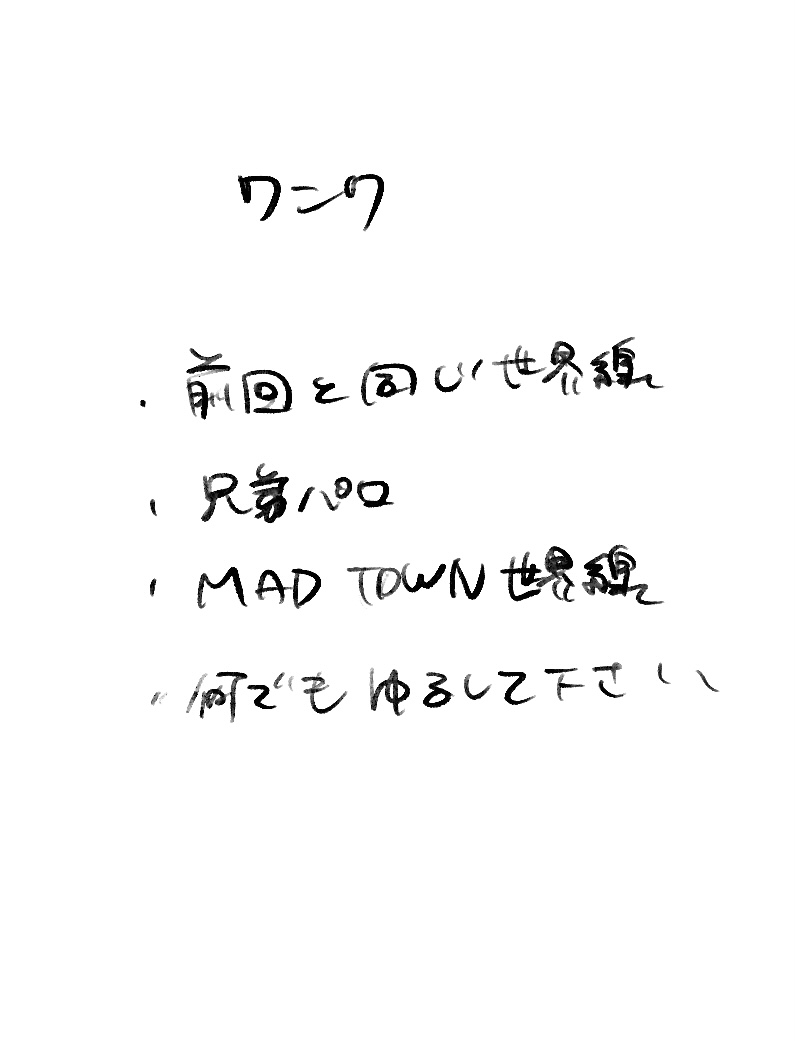 ワンク
・前回と同じ世界線
・兄弟パロ
・MAD TOWN世界線
・何でもゆるして下さい